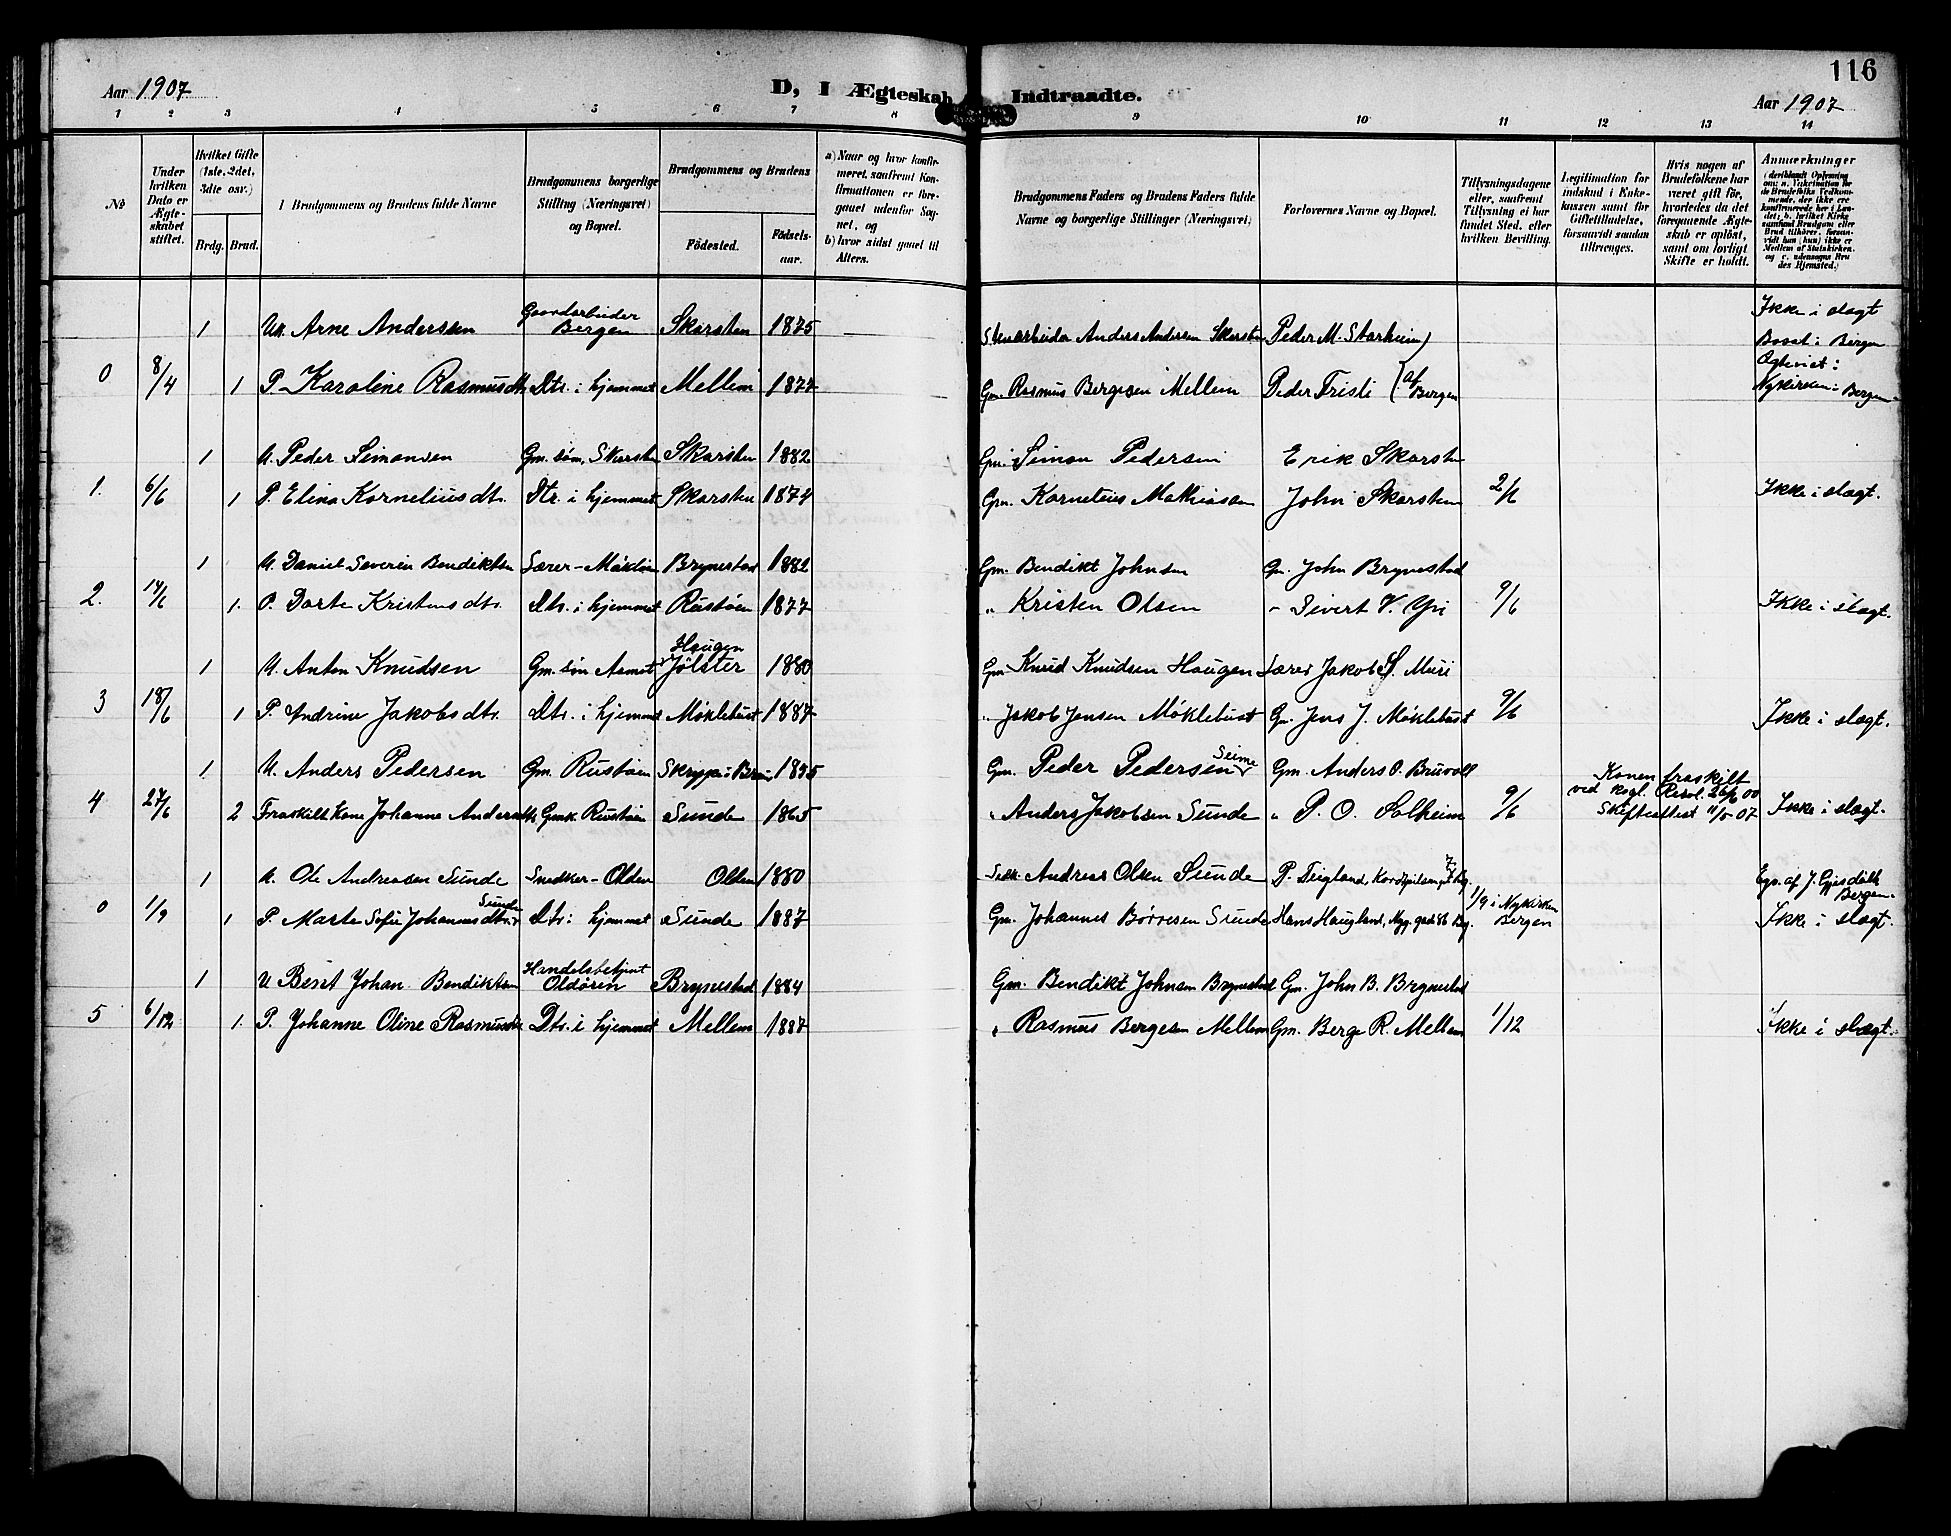 116
Aar 1907
D, I Ægteskab Indtraadte.
Aar 1907
1 2 3 4 5 6 7 8 9 10 11 12 13 14
№
Under hvilken Dato er Ægteskabet stiftet.
Hvilket Gifte (1ste, 2det, 3die osv.)
Brdg. Brud.
Brudgommens og Brudens fulde Navne
Brudgommens borgerlige Stilling (Næringsvei) og Bopæl.
Brudgommens og Brudens
Födested. Födselsaar.
a) Naar og hvor konfirmeret, saafremt Konfirmationen er foregaaet udenfor Sognet, og
b) hvor sidst gaaet til Alters.
Brudgommens Faders og Brudens Faders fulde Navne og borgerlige Stillinger (Næringsvei)
Forlovernes Navne og Bopæl.
Tillysningsdagene eller, saafremt Tillysning ei har fundet Sted, efter hvilken Bevilling.
Legitimation for indskud i Enkekassen samt for Giftetilladelse, forsaavidt saadan tiltrænges.
Hvis nogen af Brudefolkene har været gift før, hvorledes da det foregaaende Ægteskab er opløst, samt om lovligt Skifte er holdt.
Anmærkninger
1 Uk. Arne Andersen Gaardarbeider Bergen Skarsten 1875 Anders Andersen Skarsten Peder M. Starheim Ikke i slægt
Bosat i Bergen
0 8/4 1 P. Karoline Rasmusdtr. Dtr. i hjemmet Mellem 1877 Gm. Rasmus Bergesen Mellem Peder Tristi af Bergen Ogteviet i Nykirken i Bergen.
1 U. Peder Simonsen Gm. søn, Skarsten Skarsten 1882 Gm. Simon Pedersen Erik Skarsten
1. 6/6 1 P. Elina Korneliusdtr. Dtr. i hjemmet Skarsten 1874 Gm. Kornelius Mathiassen John Skarsten 2/6 Ikke i slægt.
1 U. Daniel Severin Bendiktsen Brynestad 1882 Gm. Bendikt Johnsen Gm. John Brynestad
2. 14/6 1. P. Dorte Kristensdtr. Dtr. i hjemmet Rustøen 1877 " Kristen Olsen - Sivert V. Yri 9/6 Ikke i slægt.
1 U. Anton Knudsen Gm. søn Aamot Haugen Jølster 1880 Gm. Knud Knudsen Haugen Lærer Jakob S. Muri
3 18/6 1 P. Andrine Jakobsdtr. Dtr. i hjemmet Møklebust 1887 " Jakob Jensen Møklebust Gm. Jens J. Møklebust 9/6 Ikke i slægt.
1 U. Anders Pedersen Gm. Rustøen 1855 Gm. Peder Pedersen Seime Gm. Anders O. Bruvoll
4 27/6 2 Fraskilt Kone Johanne Andersdtr. Gmk. Rustøen Sunde 1865 " Anders Jakobsen Sunde " P. O. Solheim 9/6 Konen fraskilt ved kogl. Resol. 26/6 00 Skifteattest 11/5-07 Ikke i slægt.
1 U. Ole Andreasen Sunde Snedker-Olden Olden 1880 Andreas Olsen Sunde P. Teigland, Eys. af J. Gjesdahl Bergen
0 1/9 1 P. Marte Sofie Johannesdtr. Sunde Dtr. i hjemmet Sunde 1887 Gm. Johannes Børresen Sunde Hans Haugland, 1/9 i Nykirken Bergen Ikke i slægt.
1 U Bent Johan Bendiktsen Handelsbetjent Oldøren Brynestad 1884 Gm. Bendikt Johnsen Brynestad Gm. John B. Brynestad
5 6/12 1. P. Johanne Oline Rasmusdtr. Dtr. i hjemmet Mellem 1887 " Rasmus Bergesen Mellem Gm. Berge R. Mellem 1/12 Ikke i slægt.